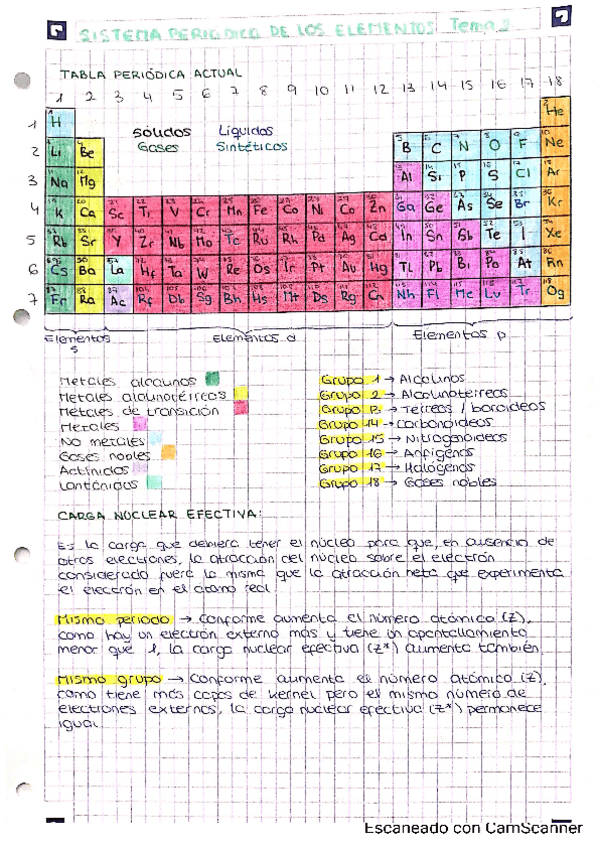 SISTEMA PERIÓDICO DE LOS ELEMENTOS Tema 2
TABLA PERIÓDICA ACTUAL
1 2 3 4 5 6 7 8 9 10 11 12 13 14 15 16 17 18
sólidos Líquidos
Gases Sintéticos
1 H He
2 Li Be B C N O F Ne
3 Na Mg Al Si P S Cl Ar
4 K Ca Sc Ti V Cr Mn Fe Co Ni Co Zn Ga Ge As Se Br Kr
5 Rb Sr Y Zr Nb Mo Tc Ru Rh Pd Ag Cd In Sn Sb Te I Xe
6 Cs Ba La Hf Ta W Re Os Ir Pt Au Hg TL Pb Bi Po At Rn
7 Fr Ra Ac Rf Db Sg Bh Hs Mt Ds Rg Cn Nh Fl Mc Lv Tr Og
Elementos s
Elementos d
Elementos p
Metales alcalinos
Metales alcalinotérreos
Metales de transición
Metales
No metales
Gases nobles
Actínidos
Lantánidos
Grupo 1 → Alcalinos
Grupo 2 → Alcalinotérreos
Grupo 13 → Térreos / boroideos
Grupo 14 → carbonoideos
Grupo 15 → Nitrogenoideos
Grupo 16 → Anfígenos
Grupo 17 → Halógenos
Grupo 18 → Gases nobles
CARGA NUCLEAR EFECTIVA:
Es la carga que debiera tener el núcleo para que, en ausencia de
otros electrones, la atracción del núcleo sobre el electrón
considerado fuera la misma que la atracción neta que experimenta
el electrón en el átomo real.
Mismo periodo → conforme aumenta el número atómico (Z),
como hay un electrón externo más y tiene un apantallamiento
menor que 1, la carga nuclear efectiva (Z*) aumenta también.
Mismo grupo → conforme aumenta el número atómico (Z),
como tiene más capas de kernel pero el mismo número de
electrones externos, la carga nuclear efectiva (Z*) permanece
igual.
Escaneado con CamScanner